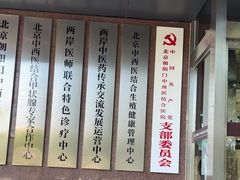 北京朝阳门中
北京中西医结合甲状腺专家合作中心
两岸医师联合特色诊疗中心
两岸中医药传承交流发展运营中心
北京中西医结合生殖健康管理中心
中国共产党
北京朝阳门中西医结合医院
支部委员会